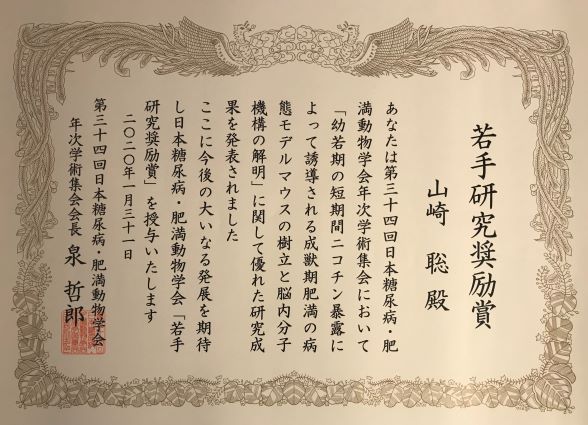 若手研究奨励賞
山崎 聡 殿
あなたは第三十四回日本糖尿病・肥
満動物学会年次学術集会において
「幼若期の短期間ニコチン暴露に
よって誘導される成獣期肥満の病
態モデルマウスの樹立と脳内分子
機構の解明」に関して優れた研究成
果を発表されました
ここに今後の大いなる発展を期待
し日本糖尿病・肥満動物学会「若手
研究奨励賞」を授与いたします
二〇二〇年一月三十一日
第三十四回日本糖尿病・肥満動物学会
年次学術集会会長 泉 哲郎